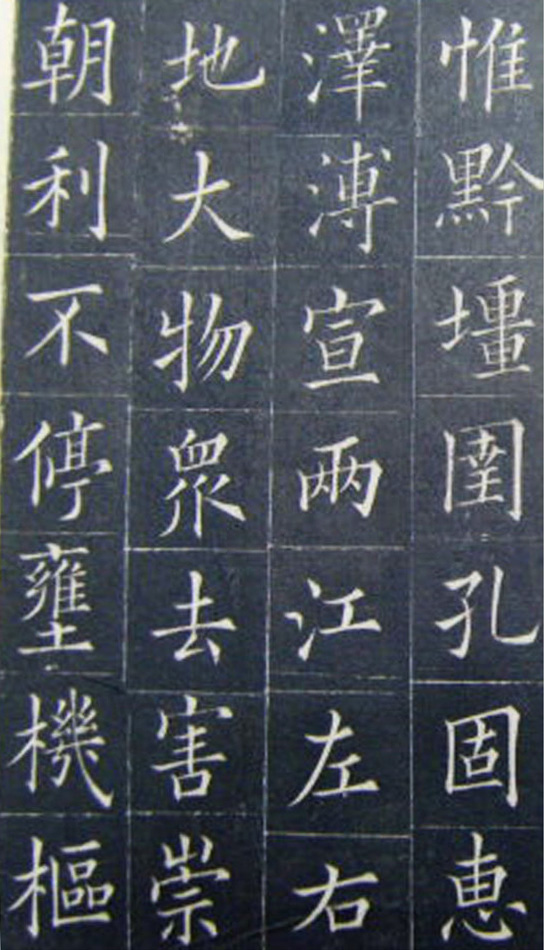 惟黔壃圉孔固恵
澤溥宣兩江左右
地大物衆去害崇
朝利不停壅機樞